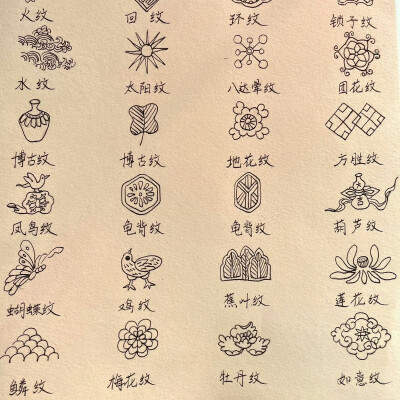 火纹 回纹 环纹 锁子纹
水纹 太阳纹 八达晕纹 团花纹
博古纹 博古纹 地花纹 方胜纹
凤鸟纹 龟背纹 龟背纹 葫芦纹
蝴蝶纹 鸡纹 蕉叶纹 莲花纹
鳞纹 梅花纹 牡丹纹 如意纹